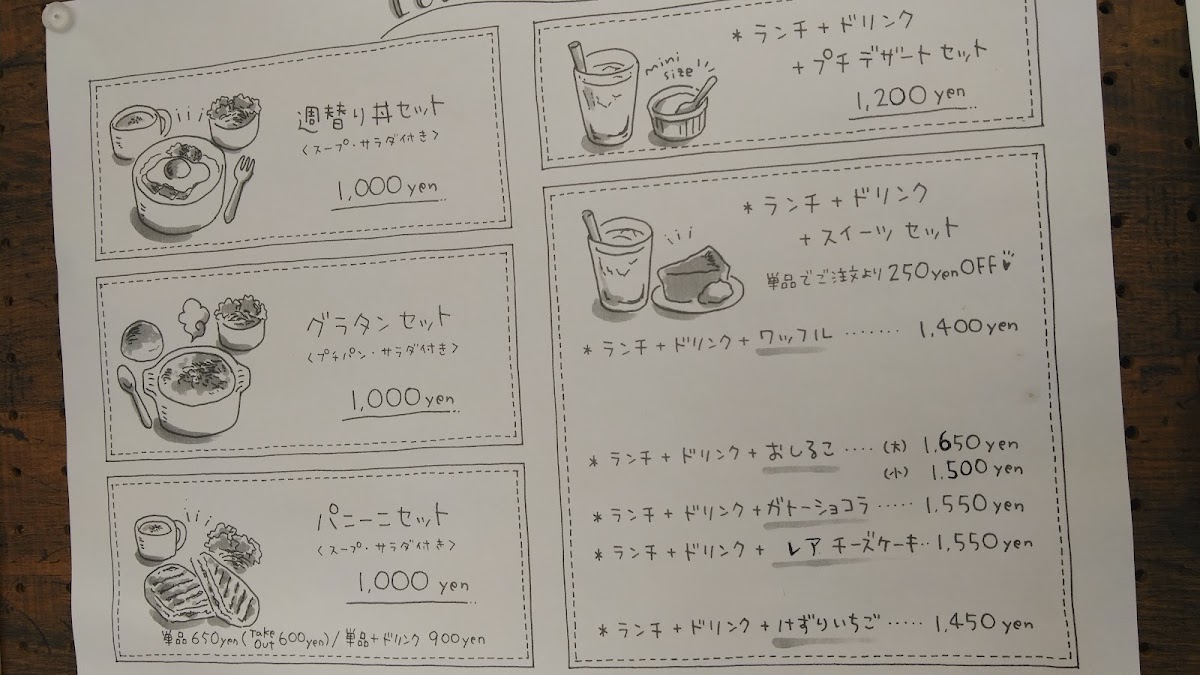 週替り丼セット
<スープ・サラダ付き>
1,000 yen
グラタンセット
<プチパン・サラダ付き>
1,000 yen
パニーニセット
<スープ・サラダ付き>
1,000 yen
単品650yen(Take Out 600yen)/単品+ドリンク 900yen
mini size
*ランチ+ドリンク
+プチデザートセット
1,200 yen
*ランチ+ドリンク
+スイーツセット
単品でご注文より250yenOFF
*ランチ+ドリンク+ワッフル ······· 1,400yen
*ランチ+ドリンク+おしるこ ···· (大) 1,650yen
(小) 1,500yen
*ランチ+ドリンク+ガトーショコラ ····· 1,550yen
*ランチ+ドリンク+ レアチーズケーキ·· 1,550yen
*ランチ+ドリンク+けずりいちご ····· 1,450yen